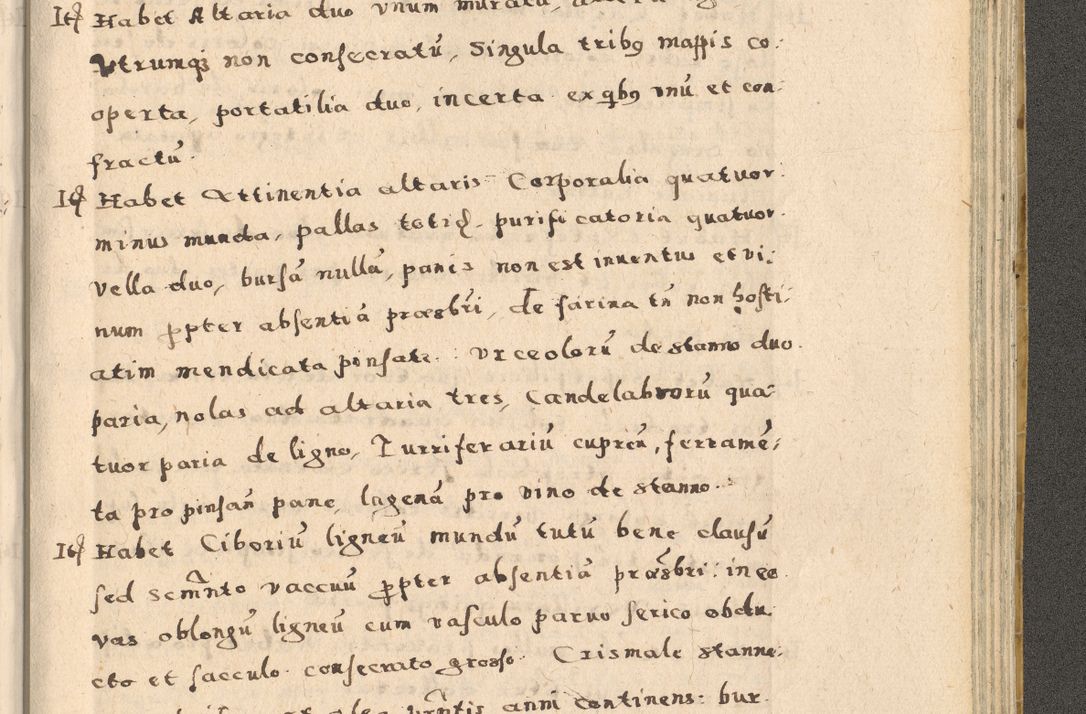 Itẽ Habet Altaria duo vnum muratũ,
Vtrumqꝫ non consecratũ, Singula tribꝰ mappis co:
operta, portatilia duo, incerta ex qbꝰ vnũ et con
fractũ.
Itẽ Habet Attinentia altaris Corporalia quatuor
minus munda, pallas totiđ, purificatoria quatuor
vella duo, bursã nullã, panis non est inuentus et vi:
num ꝓpter absentiã præsbri, de farina tñ non hosti:
atim mendicata pinsate. Vrceolorũ de stanno duo
paria, nolas ad altaria tres, Candelabrorũ qua:
tuor paria de ligno, Turriferariũ cupreũ, ferramẽ:
ta pro pinsañ pane, lagenã pro vino de stanno.
Itẽ Habet Ciboriũ ligneũ mundũ tutũ bene clausũ
sed scm̃nto vaccuũ ꝓpter absentiã præsbri: in eo
vas oblongũ ligneũ cum vasculo paruo serico obdu
cto et sacculo consecrato grosso. Crismale stanne:
anni continens: bur